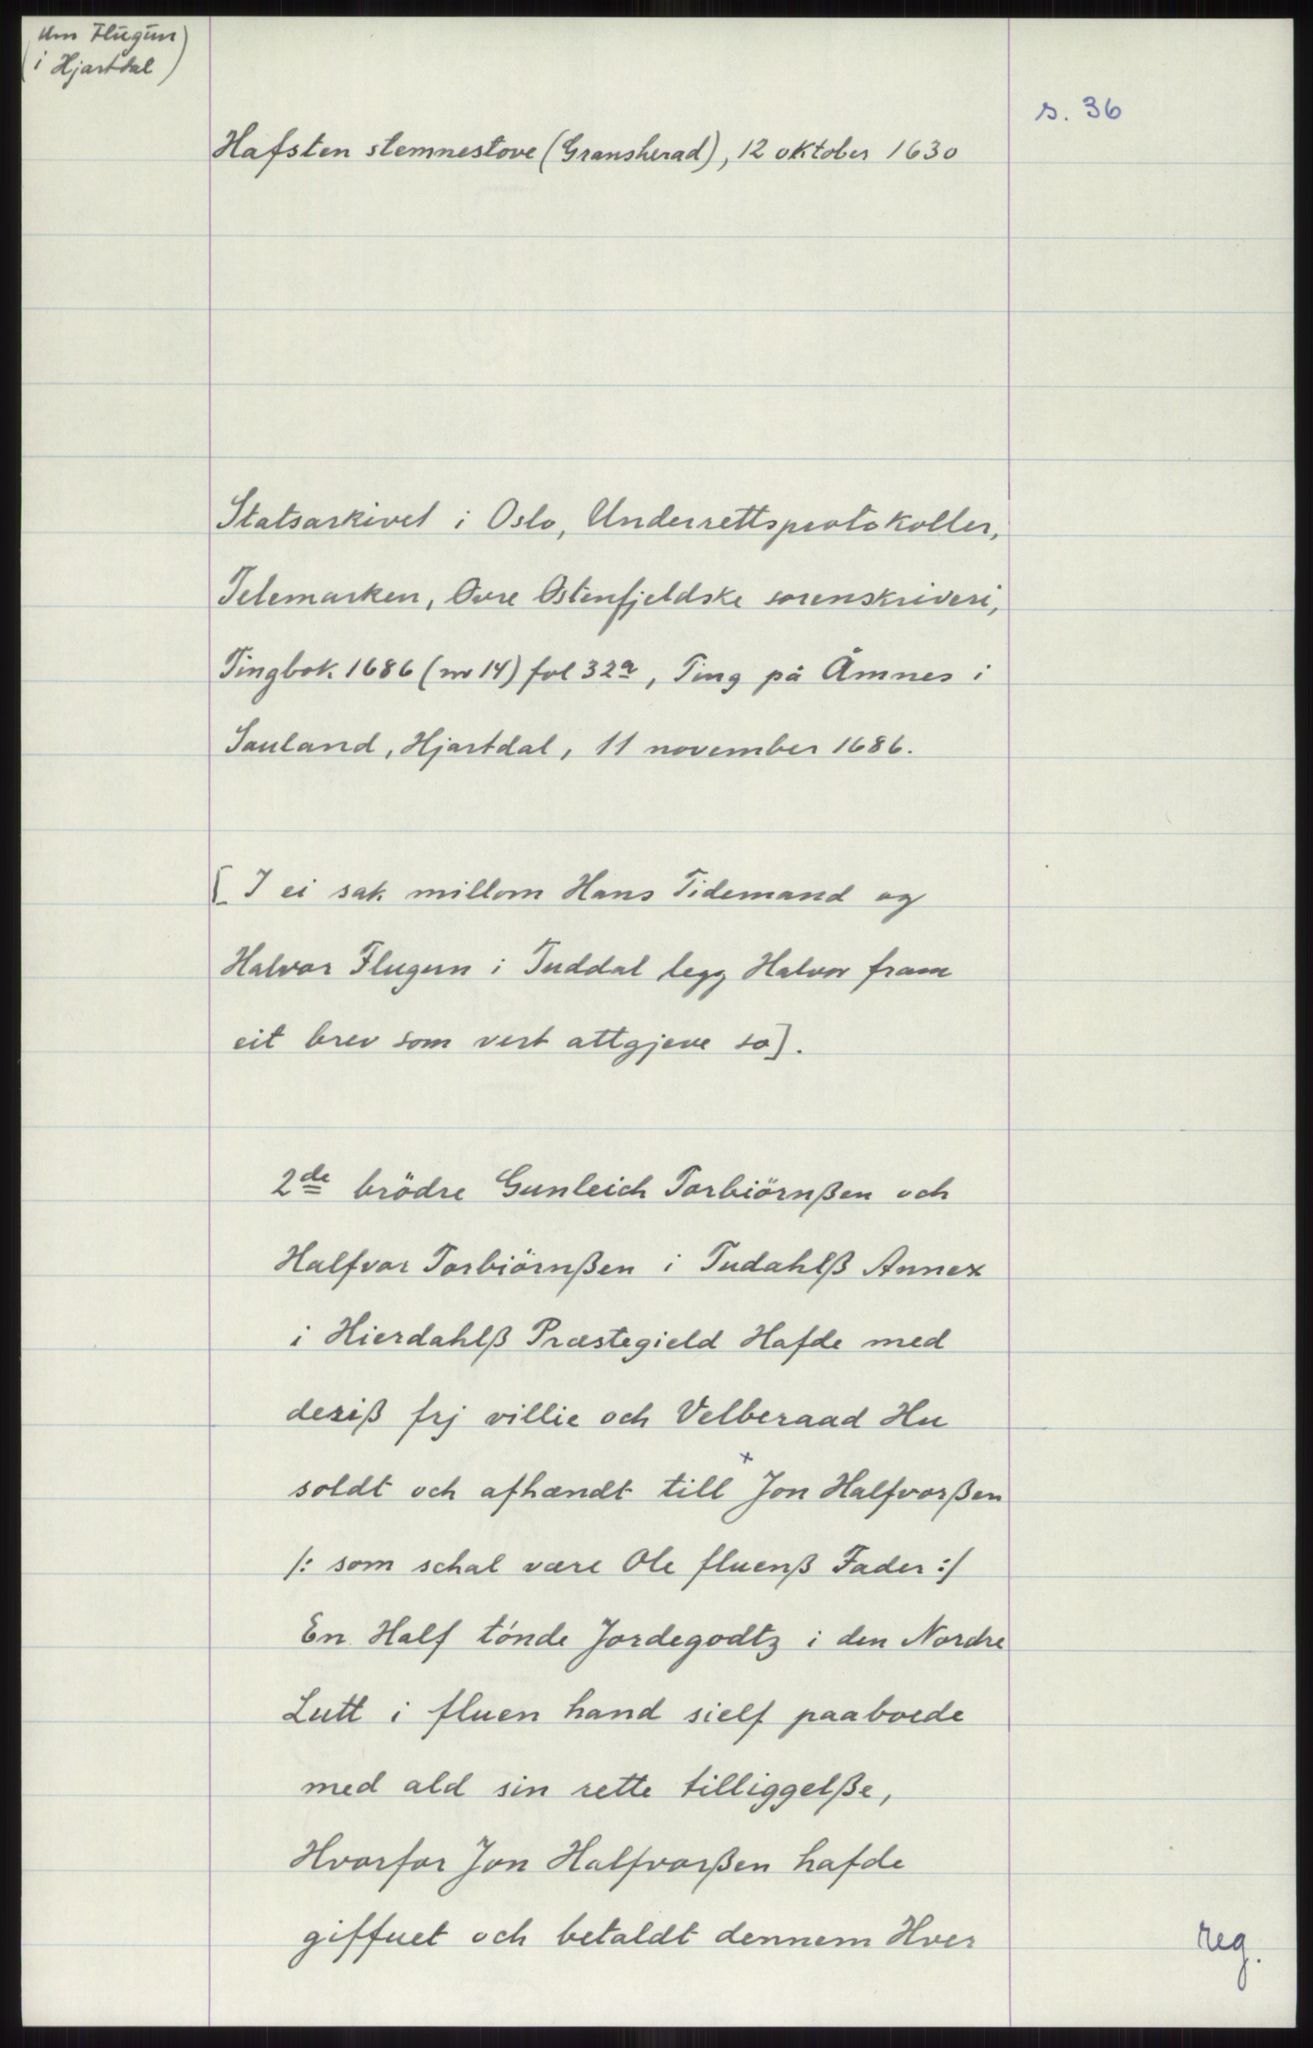 (Um Flugun
i Hjartdal)
s. 36
Hafsten stemnestove (Gransherad), 12 oktober 1630
Statsarkivet i Oslo, Underrettsprotokoller,
Telemarken, Øvre Østenfjeldske sorenskriveri,
Tingbok 1686 (nr 14) fol 32a, Ting på Åmnes i
Sauland, Hjartdal, 11 november 1686.
[I ei sak millom Hans Tidemand og
Halvor Flugun i Tuddal legg Halvor fram
eit brev som vert attgjeve so].
2de brödre Gunleich Torbiörnßen och
Halfvor Torbiörnßen i Tudahlß Annex
i Hierdahlß Præstegield Hafde med
deriß frj villie och Velberaad Hu
soldt och afhændt till x Jon Halfvorßen
/: som schal være Ole fluenß Fader :/
En Half tónde Jordegodtz i den Nordre
Lutt i fluen hand sielf paaboede
med ald sin rette tilliggelße,
Hvorfor Jon Halfvorßen hafde
giffuet och betaldt dennem Hver
reg.